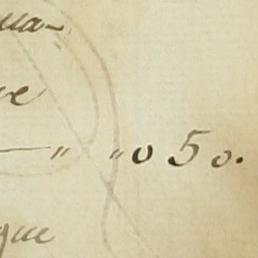 ua-
ve
— " " 0 50.
que